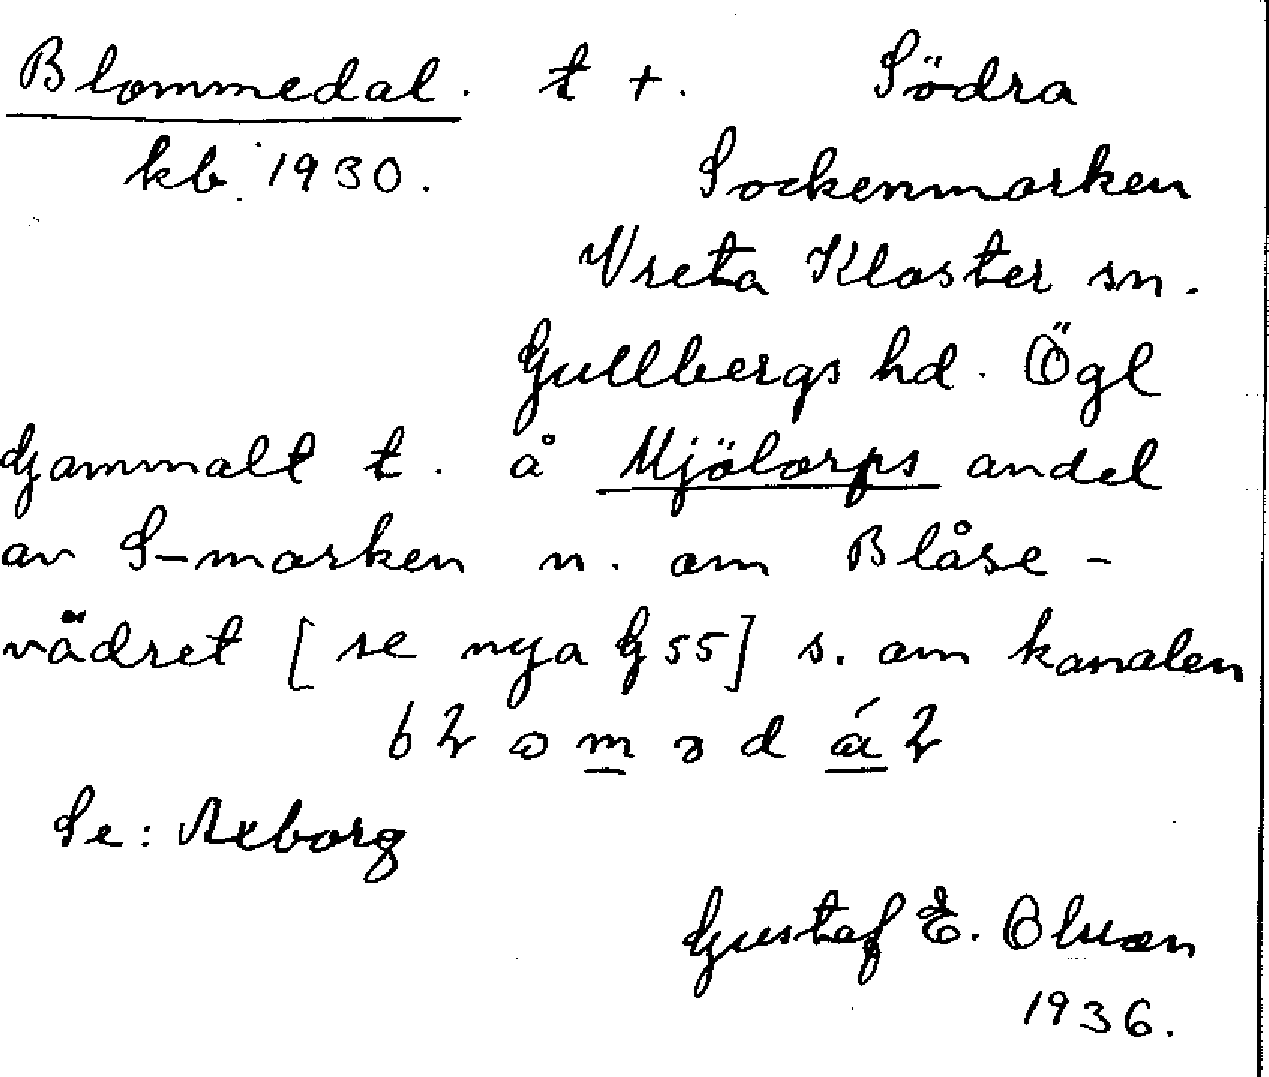 Blommedal. t +. Södra
kb. 1930. Sockenmarken
Vreta Kloster sn.
Gullbergs hd. Ögl
Gammalt t. å Mjölorps andel
av S-marken n. om Blåse-
vädret [se nya G 55] s. om kanalen
Se: Axborg
Gustaf E. Olsson
1936.